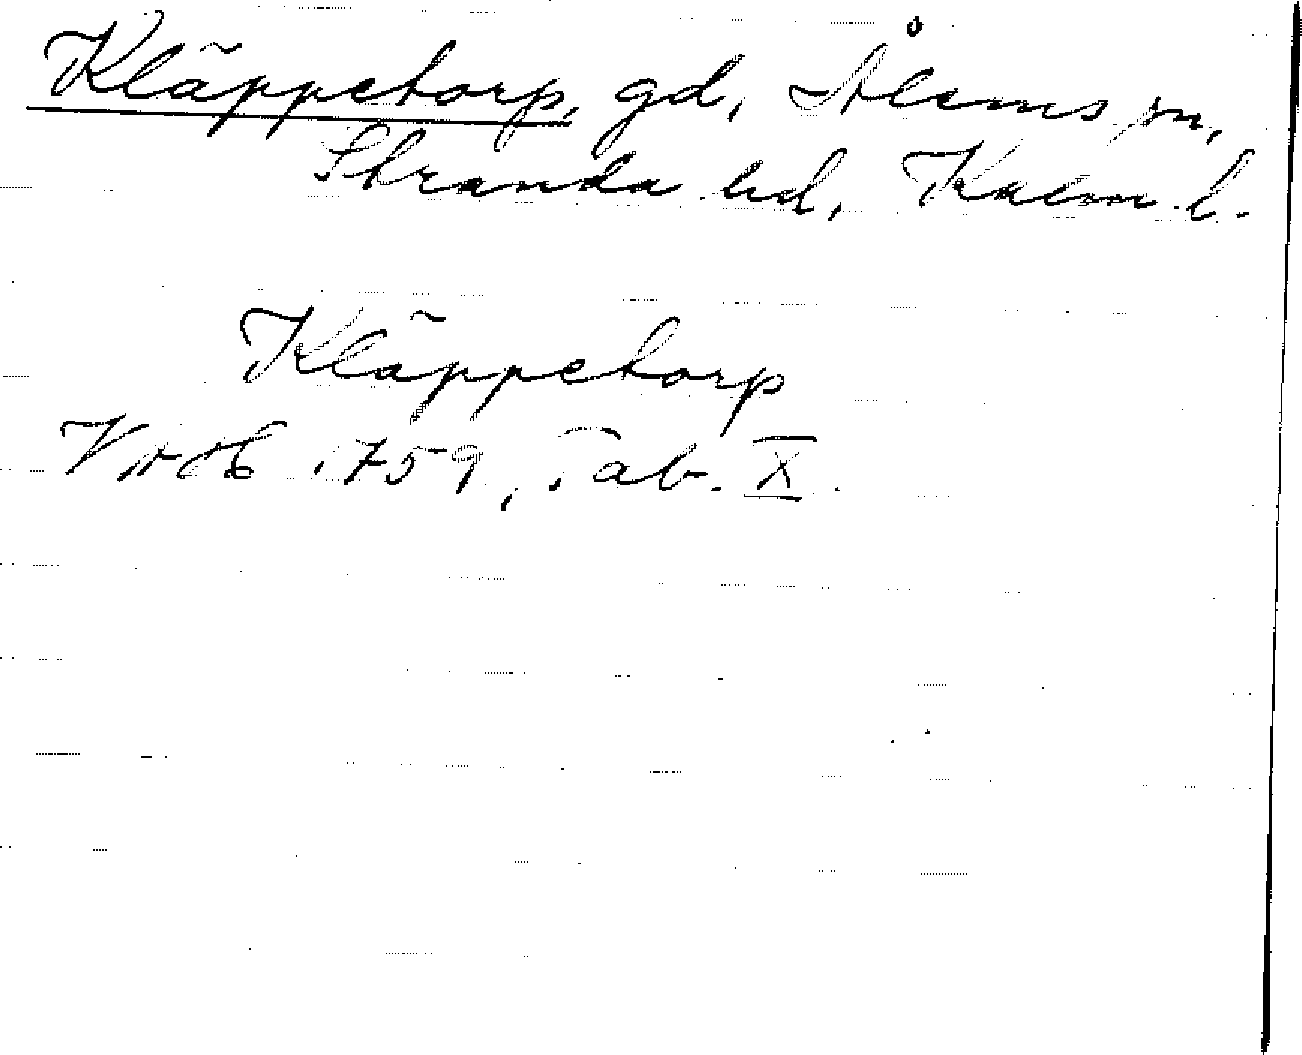 Kläppetorp, gd, Ålems sn,
Stranda hd, Kalm. l.
Kläppetorp
1759, Tab. X.